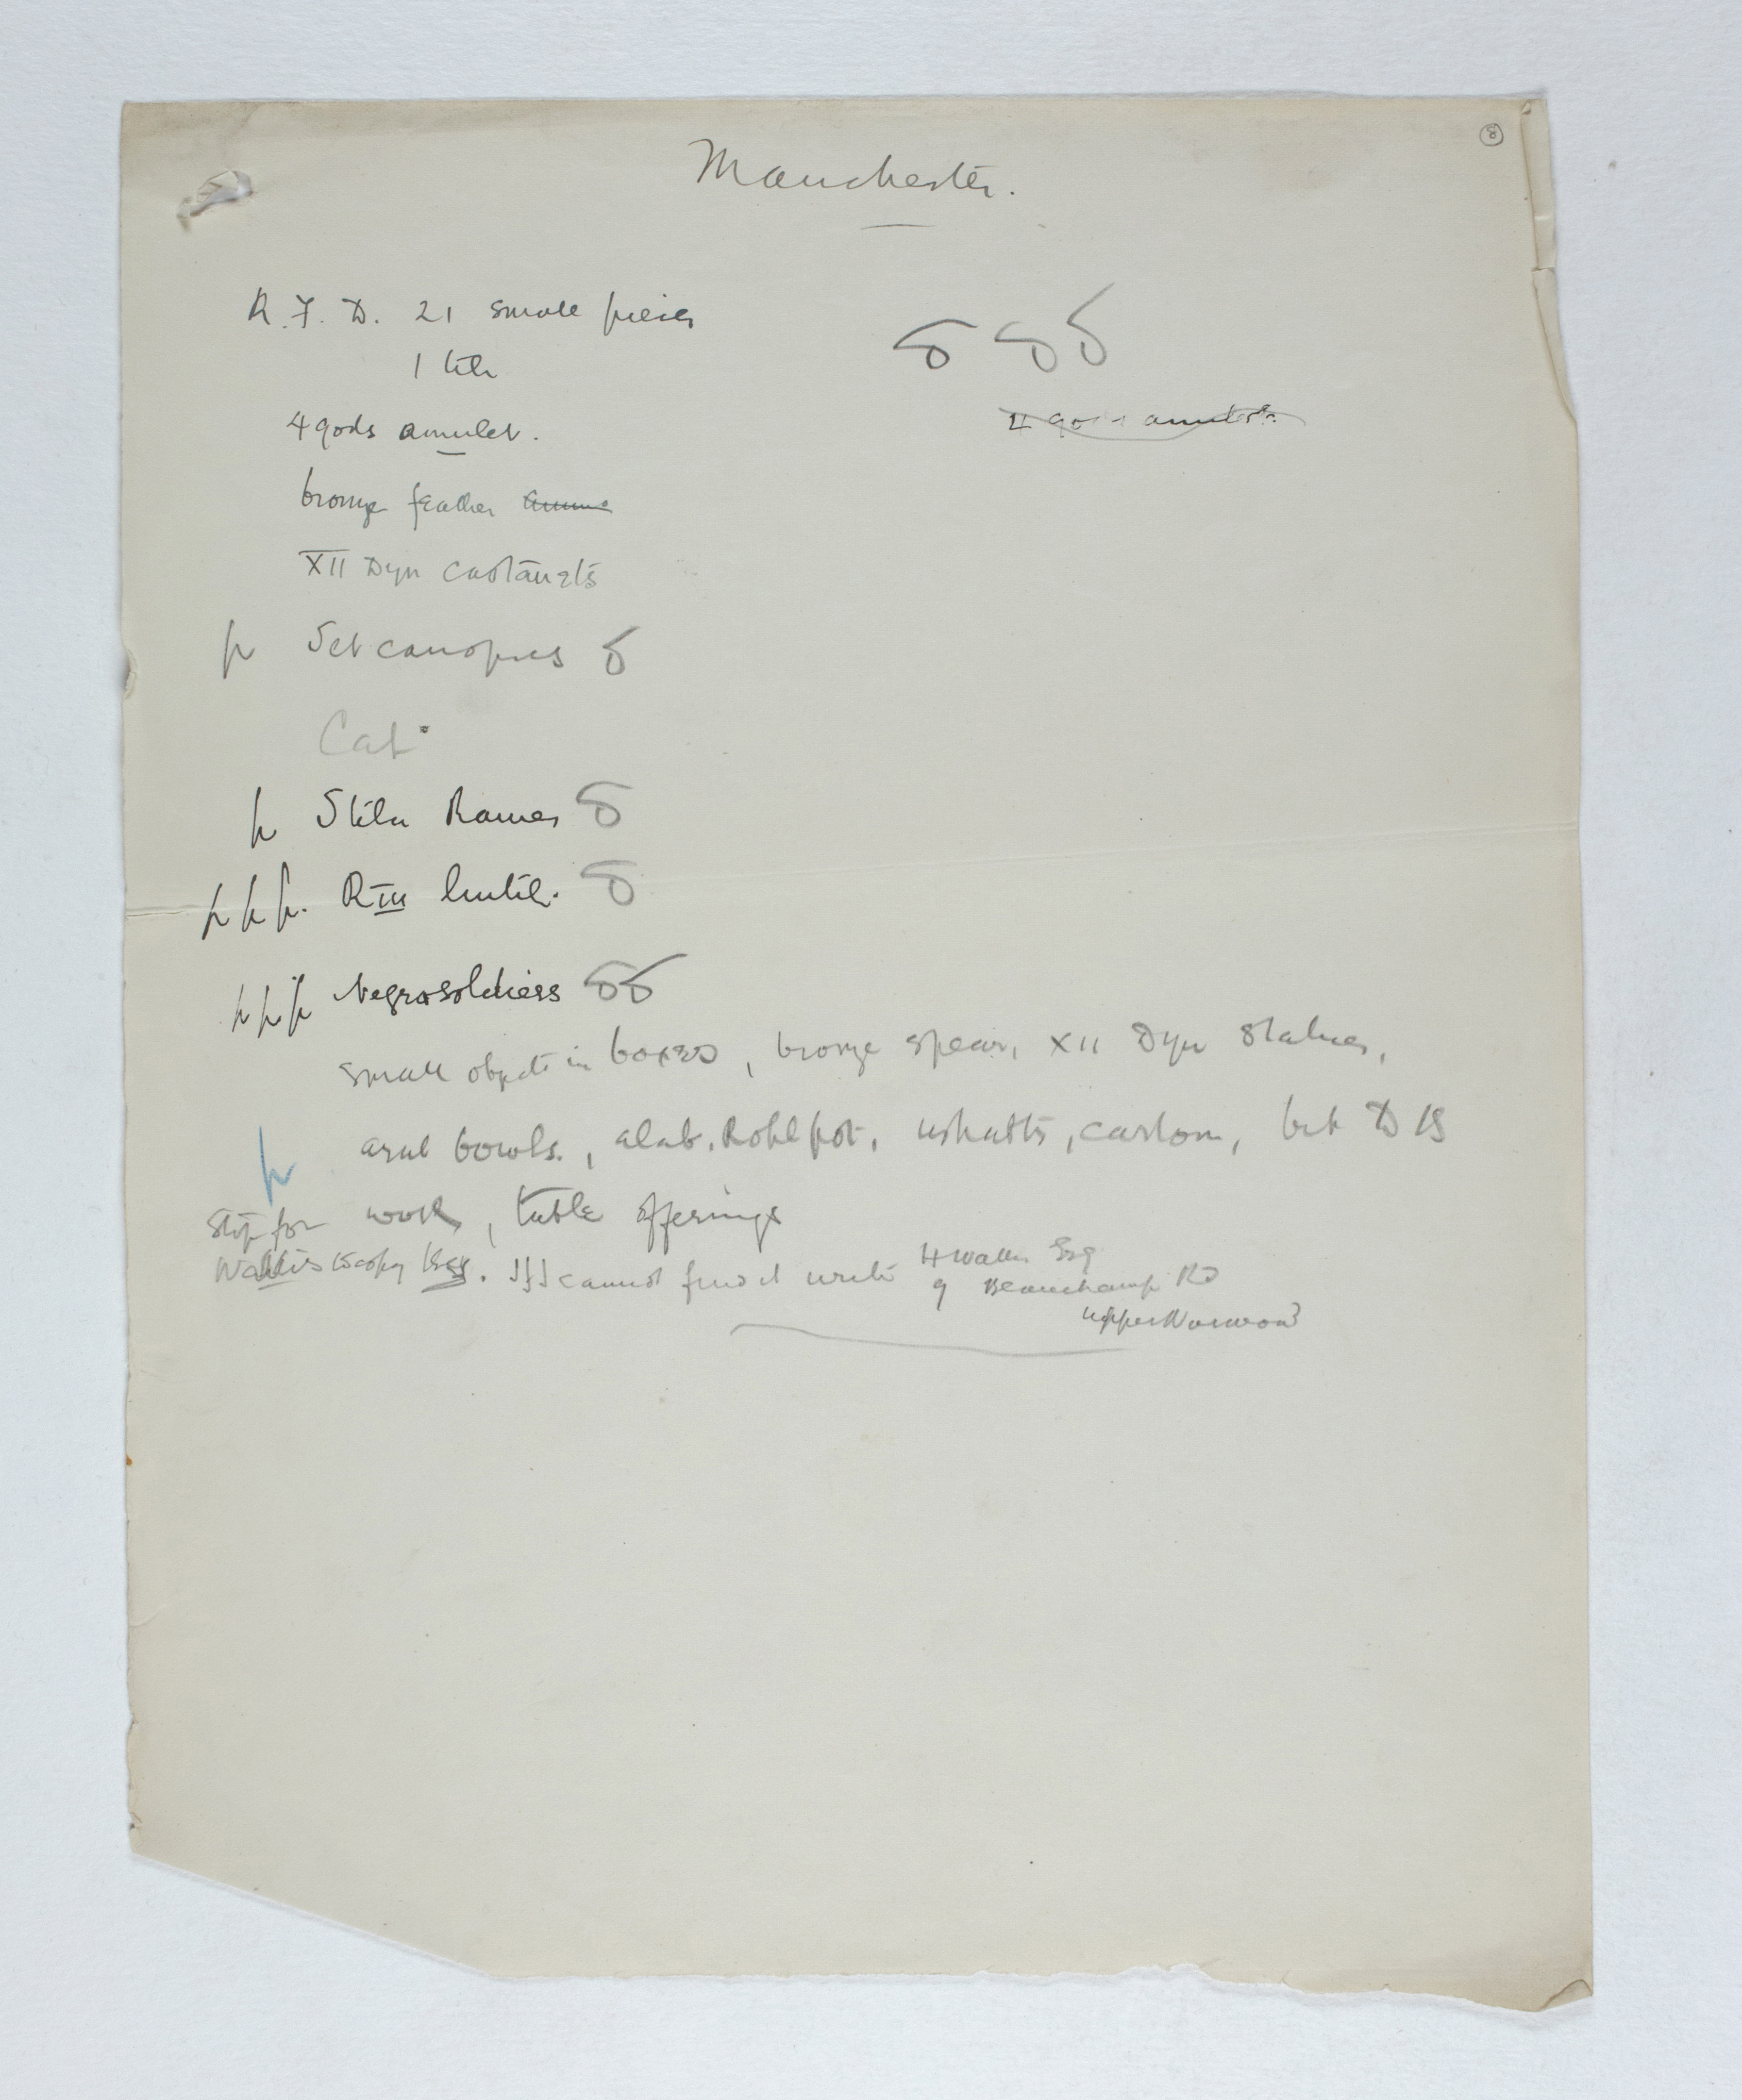 8
Manchester.
R. F. D. 21 small pieces
1 tile
4 gods amulet.
4 gods amulets.
bronze feather
XII Dyn castanets
p Set canopics δ
Cat.
p Stela Rames δ
p p p. R III lintel. δ
p p p Negro soldiers δδ
small objects in boxes, bronze spear, XII Dyn statues,
arab bowls., alab. Kohl pot, ushabti, carton, bit D 18
p work, table offerings
Stop for
Wallis to copy this. If I cannot find it write H Wallis Esq
9 Beauchamp Rd
Upper Norwood